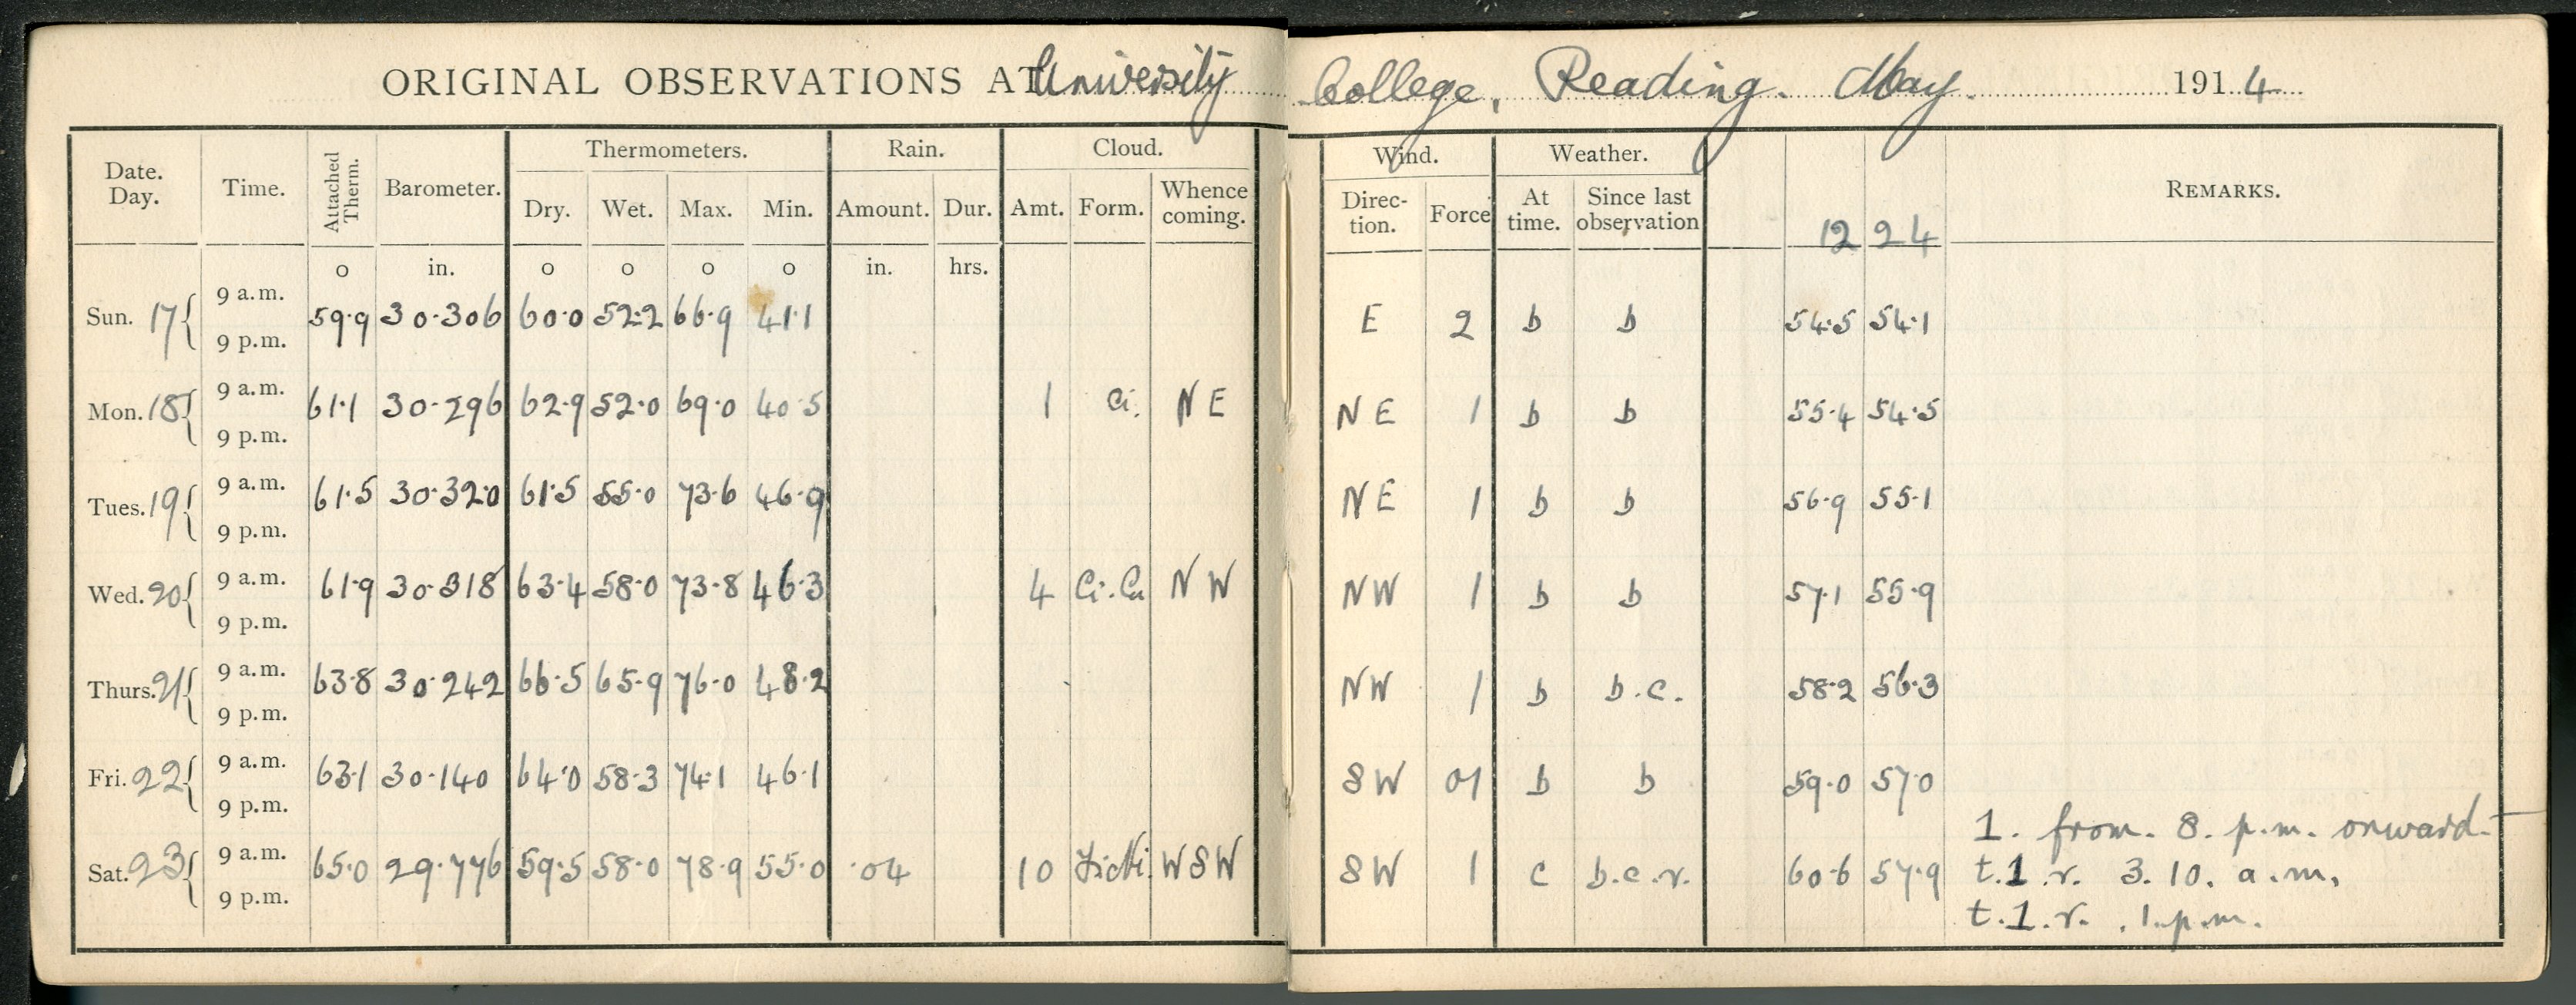 ORIGINAL OBSERVATIONS AT University College, Reading. May. 1914
Date. Day. Time. Attached Therm. Barometer. Thermometers. Rain. Cloud. Wind. Weather. REMARKS.
Dry. Wet. Max. Min. Amount. Dur. Amt. Form. Whence coming. Direction. Force At time. Since last observation 12 24
o in. o o o o in. hrs.
Sun. 17 { 9 a.m. 9 p.m. 59.9 30.306 60.0 52.2 66.9 41.1 E 2 b b 54.5 54.1
Mon. 18 { 9 a.m. 9 p.m. 61.1 30.296 62.9 52.0 69.0 40.5 1 Ci. NE NE 1 b b 55.4 54.5
Tues. 19 { 9 a.m. 9 p.m. 61.5 30.320 61.5 55.0 73.6 46.9 NE 1 b b 56.9 55.1
Wed. 20 { 9 a.m. 9 p.m. 61.9 30.318 63.4 58.0 73.8 46.3 4 Ci.Cu NW NW 1 b b 57.1 55.9
Thurs. 21 { 9 a.m. 9 p.m. 63.8 30.242 66.5 65.9 76.0 48.2 NW 1 b b.c. 58.2 56.3
Fri. 22 { 9 a.m. 9 p.m. 63.1 30.140 64.0 58.3 74.1 46.1 SW 01 b b 59.0 57.0
Sat. 23 { 9 a.m. 9 p.m. 65.0 29.776 59.5 58.0 78.9 55.0 .04 10 WSW SW 1 c b.c.r. 60.6 57.9
1. from. 8. p.m. onward.
t.1.r. 3.10. a.m.
t.1.r. .1.p.m.